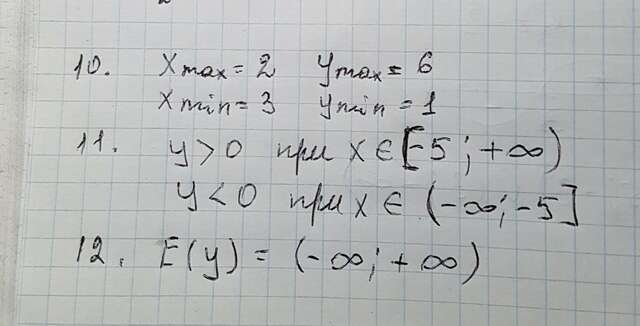 10. Xmax = 2 Ymax = 6
Xmin = 3 Ymin = 1
11. y > 0 при x ∈ [-5; +∞)
y < 0 при x ∈ (-∞; -5]
12. E(y) = (-∞; +∞)